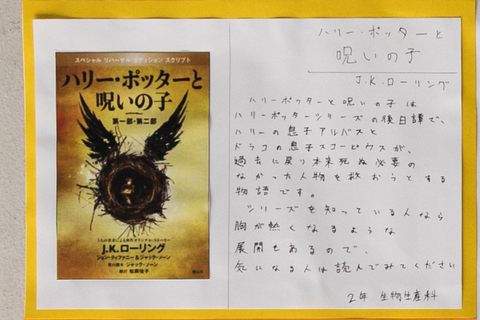 スペシャル リハーサル エディション スクリプト
ハリー・ポッターと
呪いの子
第一部・第二部
J.K.ローリング
ジョン・ティファニー & ジャック・ソーン
ジャック・ソーン
松岡佑子
ハリー・ポッターと
呪いの子
J.K.ローリング
ハリーポッターと呪いの子は
ハリーポッターシリーズの後日譚で、
ハリーの息子アルバスと
ドラコの息子スコーピウスが、
過去に戻り本来死ぬ必要の
なかった人物を救おうとする
物語です。
シリーズを知っている人なら
胸が熱くなるような
展開もあるので、
気になる人は読んでみてください
2年 生物生産科